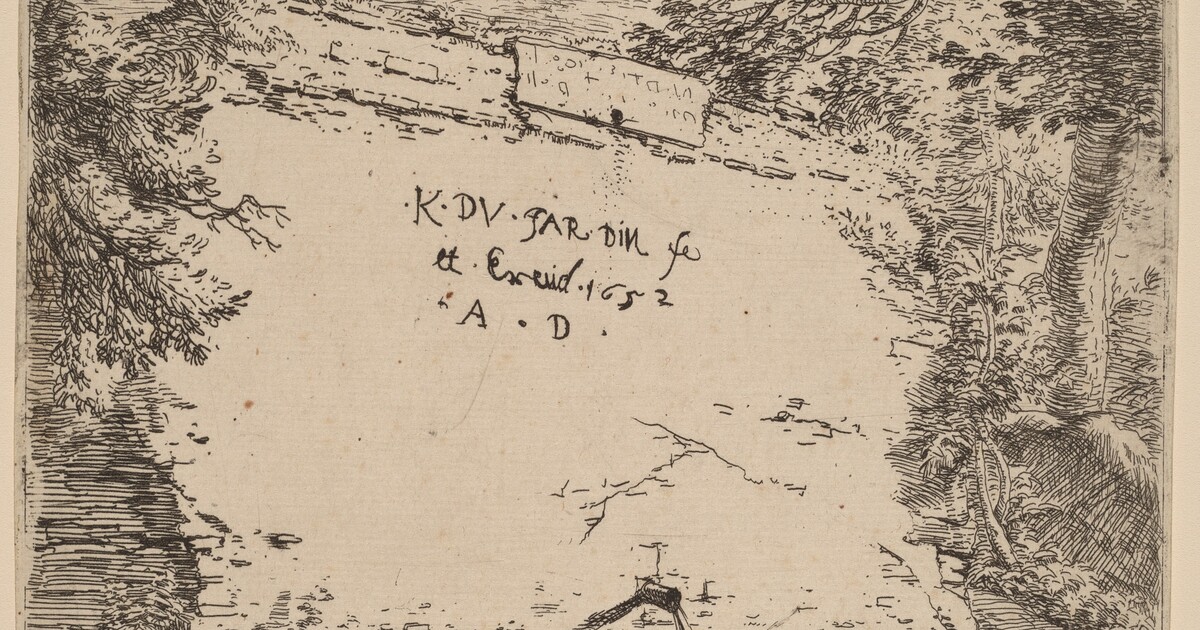 ·K·DV·JARDIN fe
et·Excud·1652
A·D·